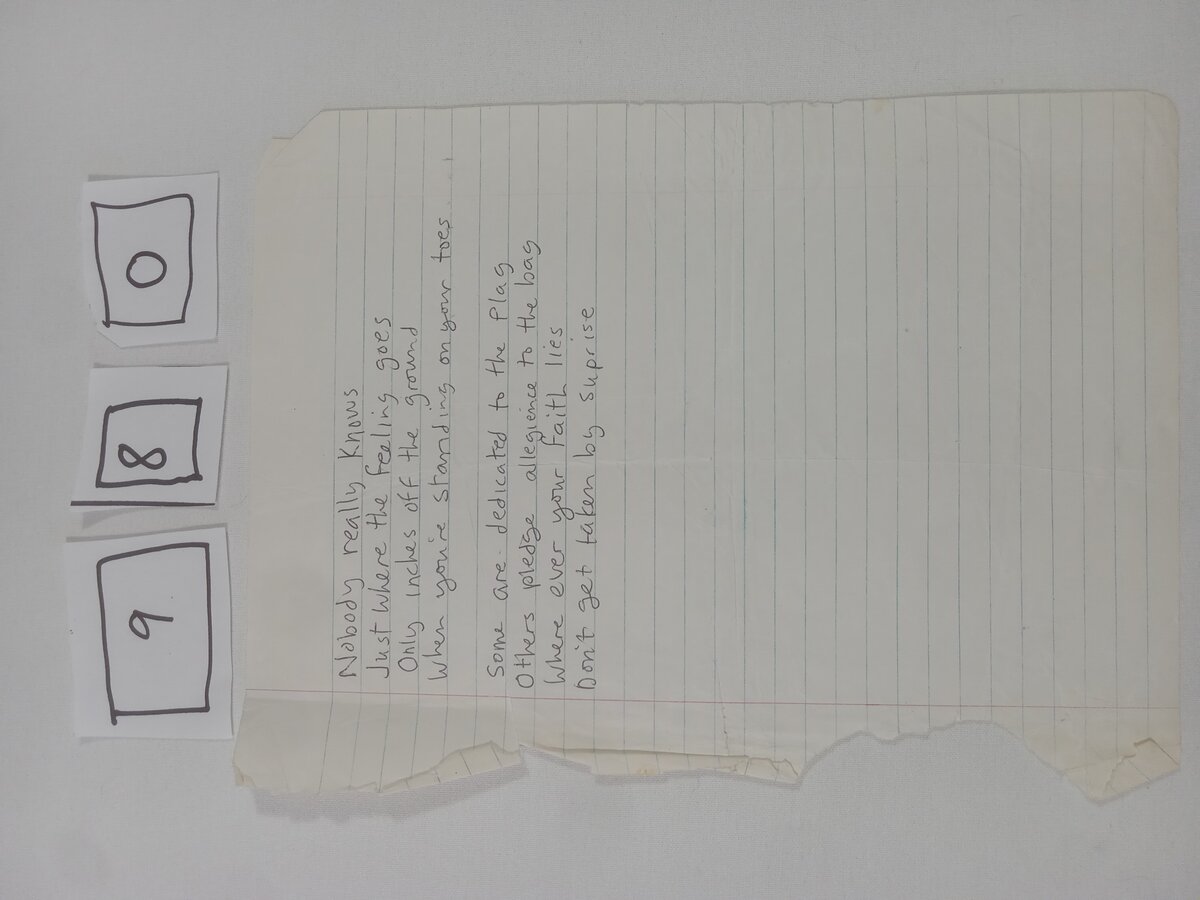 9 8 0
Nobody really knows
Just where the feeling goes
Only inches off the ground
When you're standing on your toes
Some are dedicated to the flag
Others pledge allegience to the bag
Where ever your faith lies
Don't get taken by suprise